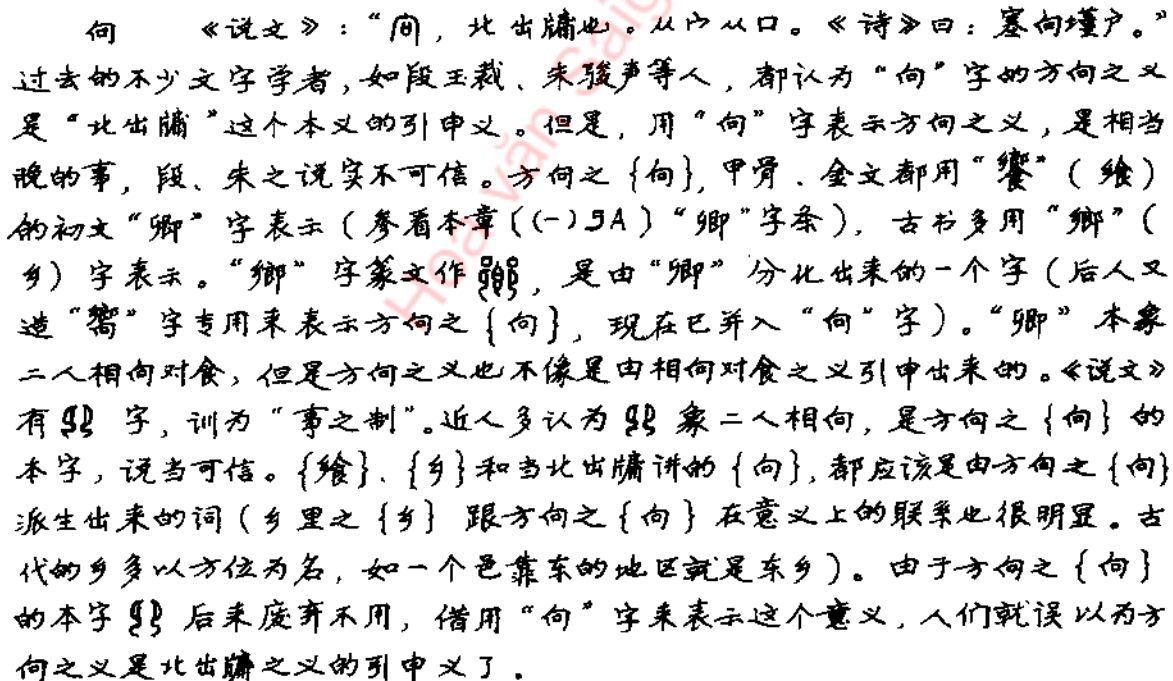 向　　《说文》：“向，北出牖也。从宀从口。《诗》曰：塞向墐户。”
过去的不少文字学者，如段玉裁、朱骏声等人，都认为“向”字的方向之义
是“北出牖”这个本义的引申义。但是，用“向”字表示方向之义，是相当
晚的事，段、朱之说实不可信。方向之{向}，甲骨、金文都用“饗”（飨）
的初文“卿”字表示（参看本章〔(一)5A〕“卿”字条），古书多用“鄉”（
乡）字表示。“鄉”字篆文作，是由“卿”分化出来的一个字（后人又
造“嚮”字专用来表示方向之{向}，现在已并入“向”字）。“卿”本象
二人相向对食，但是方向之义也不像是由相向对食之义引申出来的。《说文》
有 字，训为“事之制”。近人多认为 象二人相向，是方向之{向}的
本字，说当可信。{飨}、{乡}和当北出牖讲的{向}，都应该是由方向之{向}
派生出来的词（乡里之{乡}跟方向之{向}在意义上的联系也很明显。古
代的乡多以方位为名，如一个邑靠东的地区就是东乡）。由于方向之{向}
的本字 后来废弃不用，借用“向”字来表示这个意义，人们就误以为方
向之义是北出牖之义的引申义了。
Hoa văn Saig